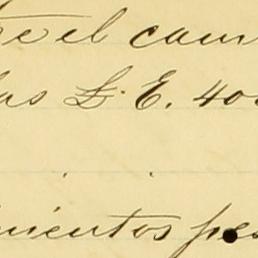 el cam
as L. E. 40
mientos pes